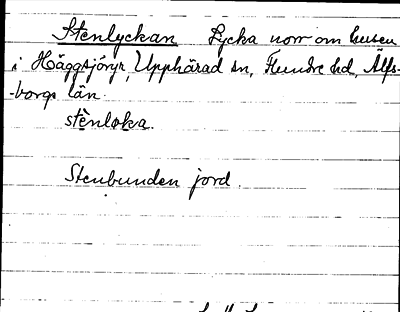 Stenlyckan Lycka norr om husen
i Häggsjöryr, Upphärad sn, Flundre hd, Älfs-
-borgs län.
stènløka.
Stenbunden jord.